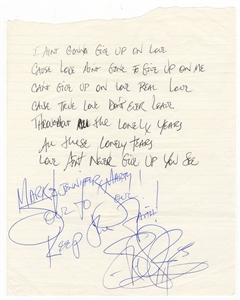 I AINT GONNA GIVE UP ON LOVE
CAUSE LOVE AINT GONE TO GIVE UP ON ME
CAN'T GIVE UP ON LOVE REAL LOVE
CAUSE TRUE LOVE DON'T EVER LEAVE
THROUGHOUT ALL the LONELY YEARS
All these LONELY TEARS
LOVE AIN'T NEVER GIVE UP YOU SEE
MARK & JENNIFER & MARTY!
KEEP the FAITH!